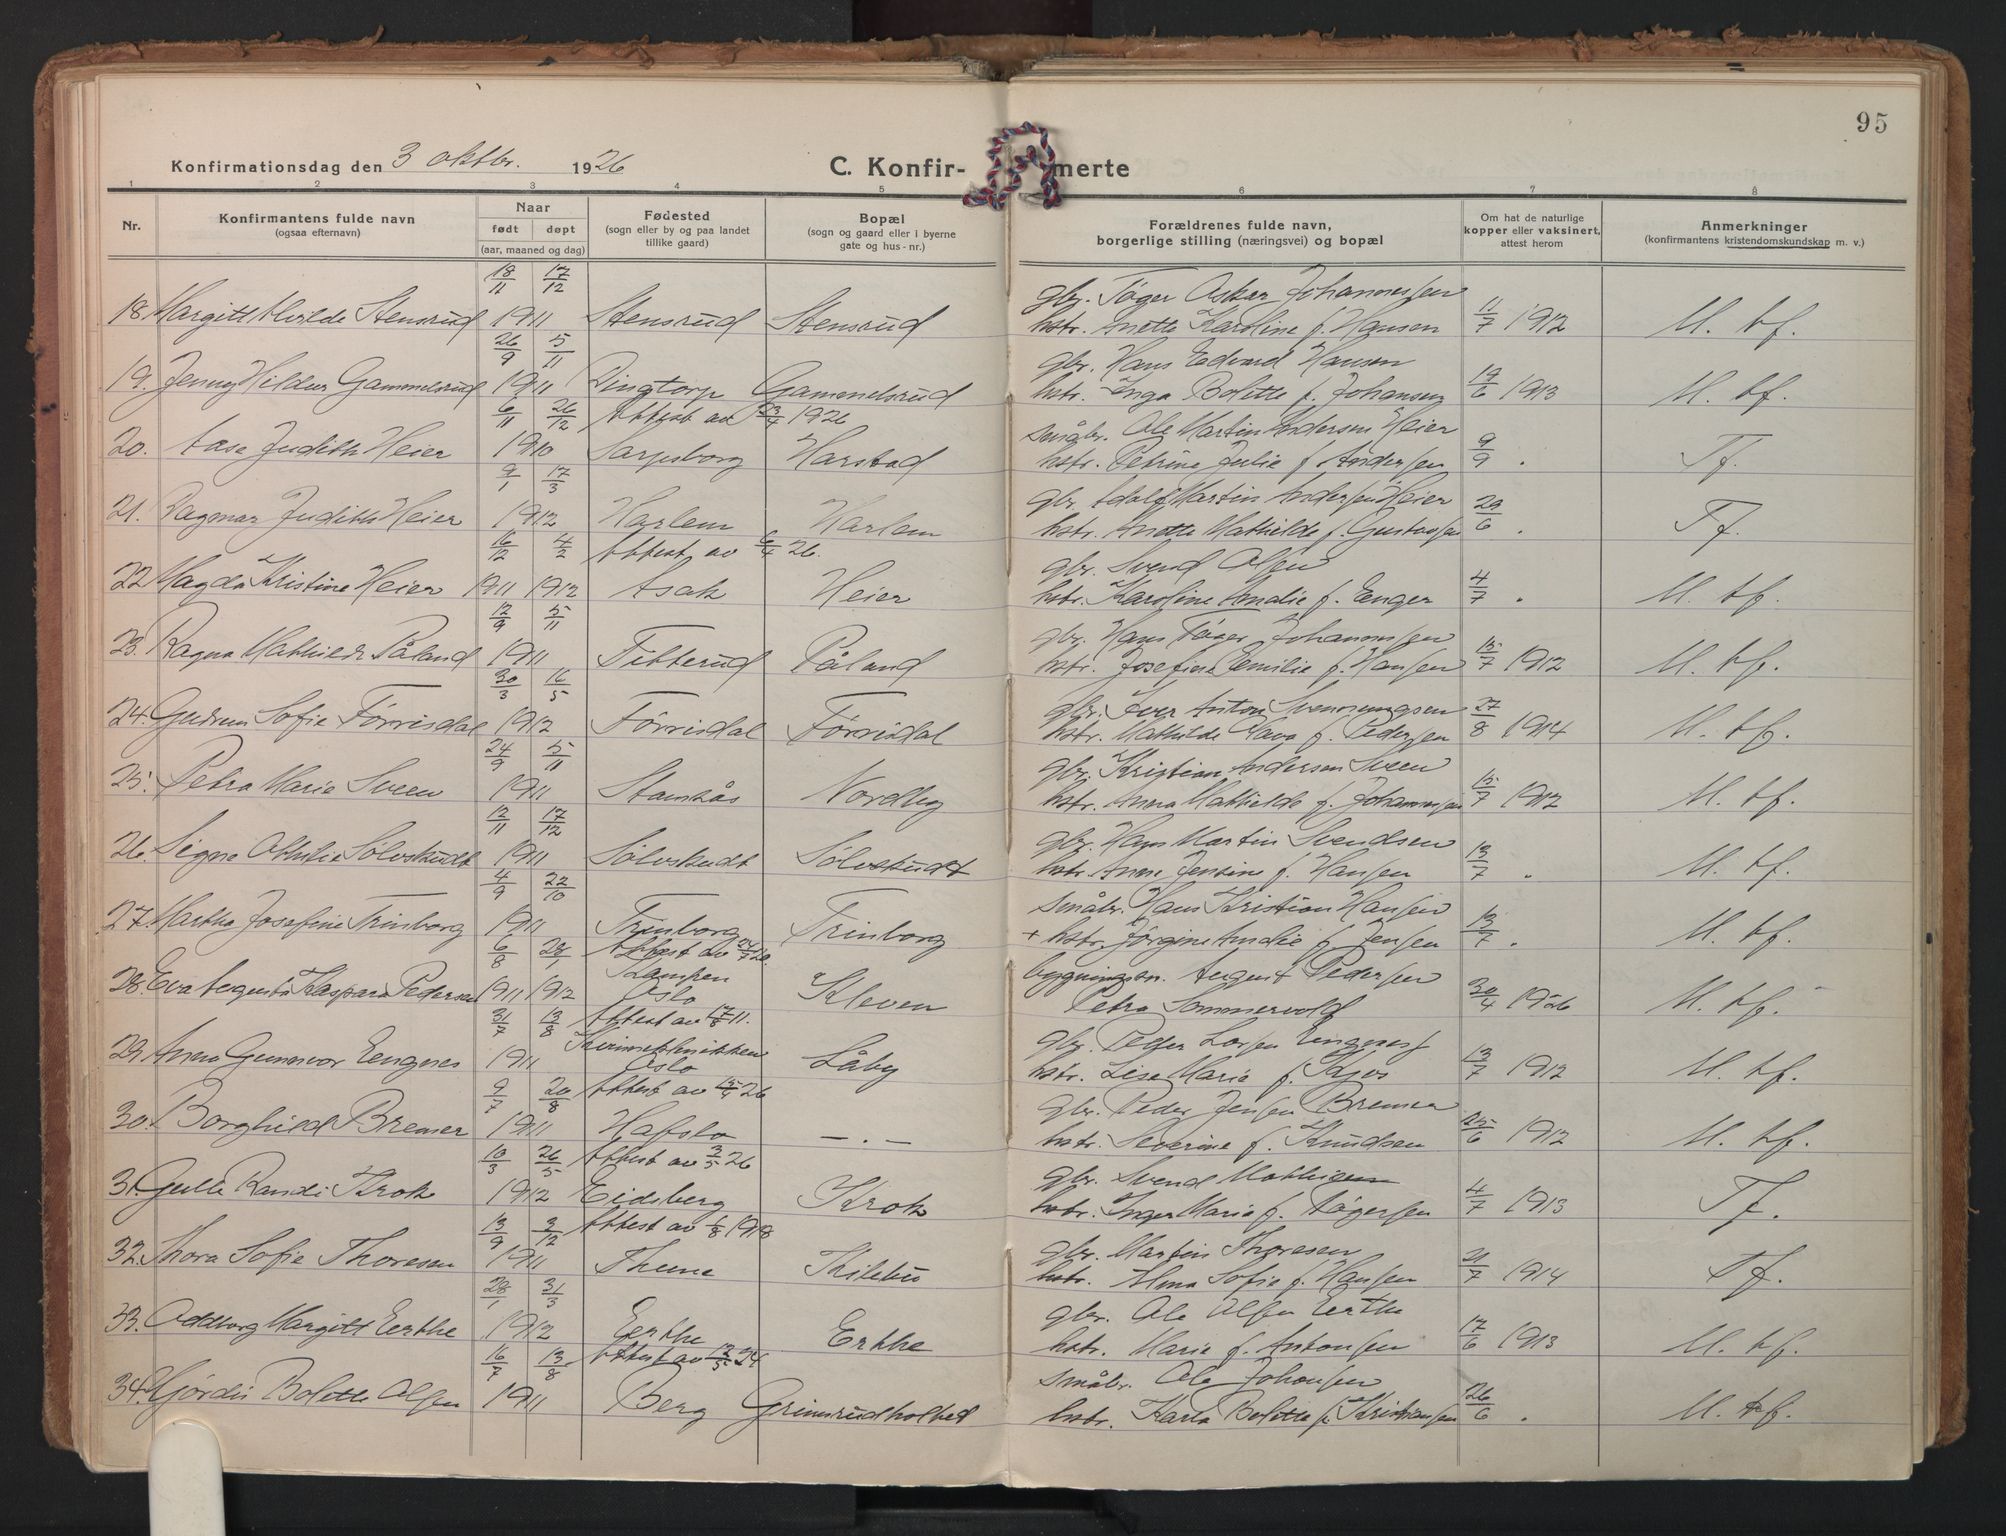 95
Konfirmationsdag den 3 oktbr. 1926
C. Konfir-
merte
1 2 3 4 5 6 7 8
Nr.
Konfirmantens fulde navn
(ogsaa efternavn)
Naar
født døpt
(aar, maaned og dag)
Fødested
(sogn eller by og paa landet
tillike gaard)
Bopæl
(sogn og gaard eller i byerne
gate og hus-nr.)
Forældrenes fulde navn,
borgerlige stilling (næringsvei) og bopæl
Om hat de naturlige
kopper eller vaksinert,
attest herom
Anmerkninger
(konfirmantens kristendomskundskap m. v.)
18/11 17/12 gbr. Tøger Oskar Johannessen
18. Margitt Alvilde Stensrud 1911 Stensrud Stensrud hstr. Anette Karoline f. Hansen 11/7 1912 M. tf.
26/9 5/11 gbr. Hans Edvard Hansen
19. Jenny Hildur Gammelsrud 1911 Gammelsrud hstr. Inga Bolette f. Johansen 19/6 1913 M. tf.
6/11 26/12 Attest av 23/4 1926 småbr. Ole Martin Andersen Heier
20. Aase Judith Heier 1910 Sarpsborg Harstad hstr. Petrine Julie f. Andersen 9/9 " Tf.
9/1 17/3 gbr. Adolf Martin Andersen Heier
21. Dagmar Judith Heier 1912 Harlem Harlem hstr. Anette Mathilde f. Gustavsen 29/6 " Tf.
16/12 4/2 Attest av 6/4 26. gbr. Svend Olsen
22 Magda Kristine Heier 1911 1912 Asak Heier hstr. Karoline Amalie f. Eenger 4/7 " M. tf.
12/9 5/11 gbr. Hans Tøger Johannessen
23. Ragna Mathilde Påland 1911 Titterud Påland hstr. Josefine Emilie f. Hansen 15/7 1912 M. tf.
30/3 16/5 gbr. Iver Anton Svenningsen
24. Gudrun Sofie Förrisdal 1912 Förrisdal Förrisdal hstr. Mathilde f. Pedersen 27/8 1914 M. tf.
24/9 5/11 gbr. Kristian Andersen Sveen
25. Petra Marie Sveen 1911 Stamsås Nordby hstr. Anna Mathilde f. Johannessen 15/7 1912 M. tf.
12/11 17/12 gbr. Hans Martin Svendsen
26. Signe Othilie Sølvskudt 1911 Sølvskudt Sølvskudt hstr. Anne Jensine f. Hansen 13/7 " M. tf.
4/9 22/10 småbr. Hans Kristian Hansen
27. Martha Josefine Trinborg 1911 Trinborg Trinborg + hstr. Jørgine Amalie f. Jensen 13/7 " M. tf.
6/8 28/1 Attest av bygningssn. August Pedersen
28. Eva Augusta Kaspara Pedersen 1911 1912 Kampen Oslo Kleven Petra Sommervold 30/4 1926 M. tf.
31/7 13/8 Attest av 17/8 11. gbr. Peder Larsen Eengnes
29. Anna Gunnvor Eengnes 1911 Oslo Låby hstr. Lise Marie f. 13/7 1912 M. tf.
9/7 20/8 Attest av 15/4 26 gbr. Peder Jensen Bremer
30. Borghild Bremer 1911 Hafslo —.— hstr. Severine f. Knudsen 25/6 1912 M. tf.
10/3 26/5 Attest av 3/5 26 gbr. Svend Mathisen
31. Gulle Randi Krok 1912 Eidsberg Krok hstr. Inger Marie f. Tøgersen 4/7 1913 Tf.
13/9 3/12 Attest av 1/8 1918 gbr. Martin Thoresen
32. Thora Sofie Thoresen 1911 Thune Kilebu hstr. Alma Sofie f. Hansen 21/7 1914 Tf.
28/1 31/3 gbr. Ole Olsen Eerthe
33. Oddborg Margitt Eerthe 1912 Eerthe Erthe hstr. Marie f. Antonsen 17/6 1913 M. tf.
16/7 13/8 Attest av 12/5 24 småbr. Ole Johansen
34. Hjørdis Bolette Olsen 1911 Berg Grimsrudholtet hstr. Karla Bolette f. Kristiansen 26/6 " M. tf.